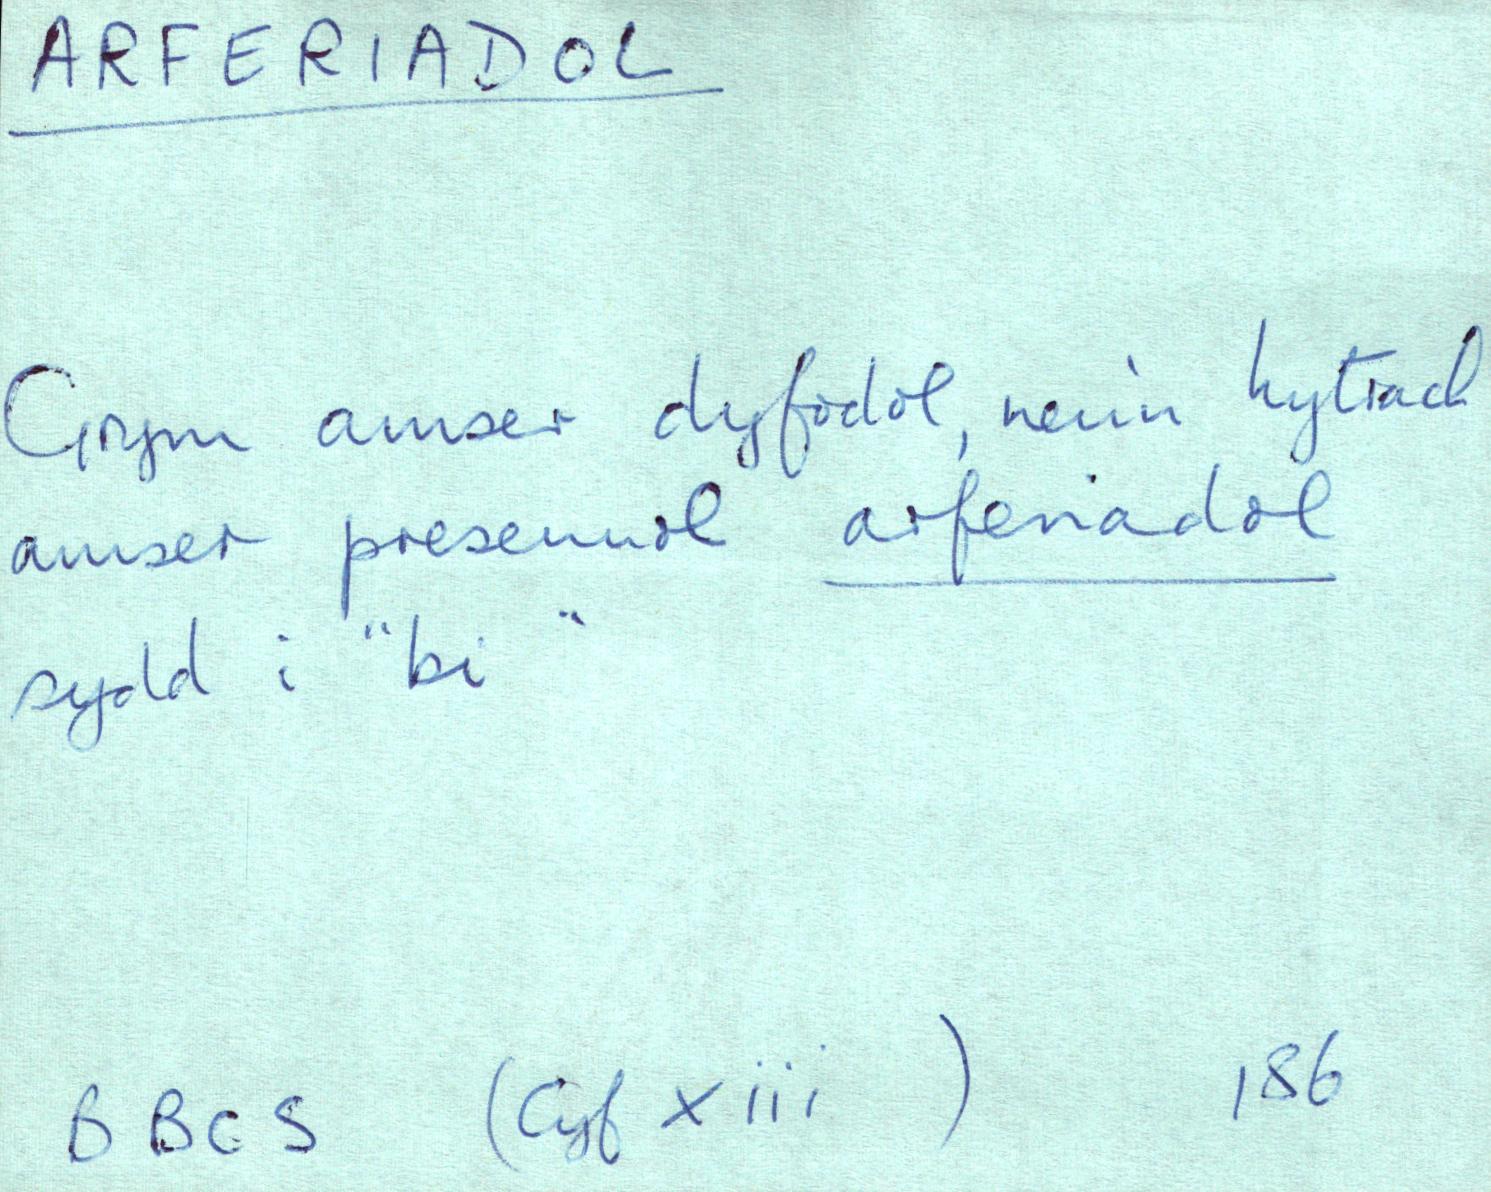 ARFERIADOL
Grym amser dyfodol, neu'n hytrach
amser presennol arferiadol
sydd i "bi"
BBCS (Cyf xiii) 186